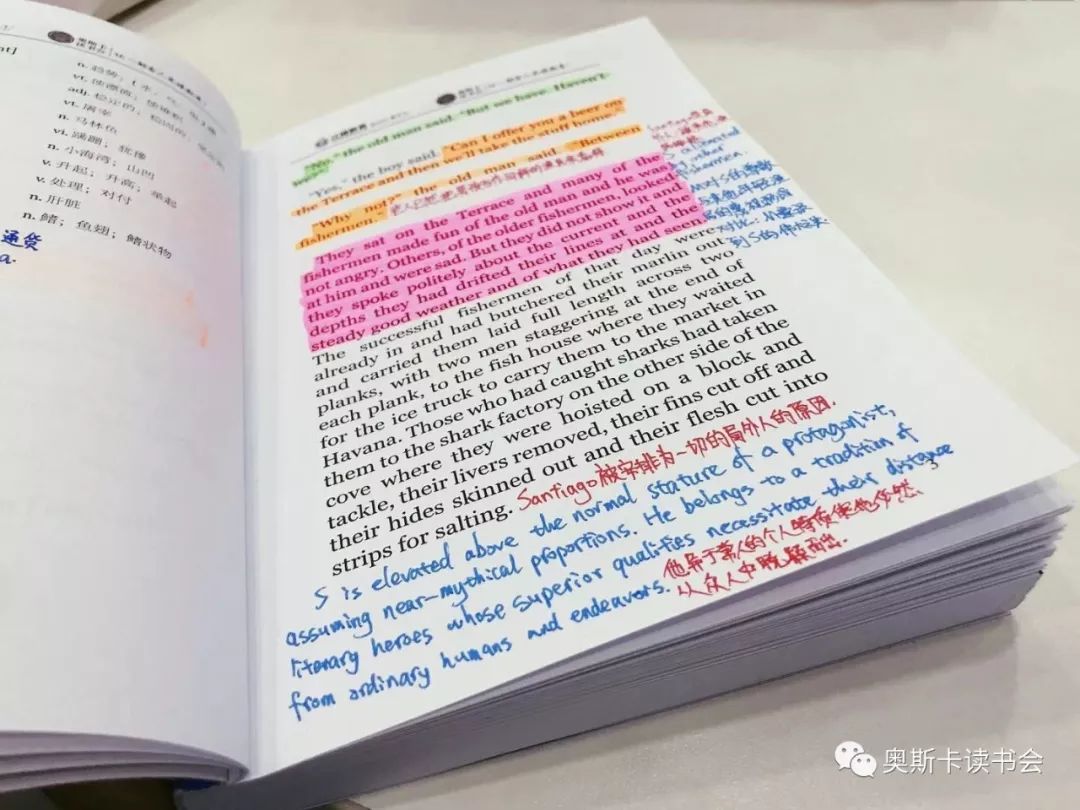 n. 趋势；
adj. 稳定的，
n. 马林鱼
vi. 蹒跚；犹豫
n. 小海湾；山凹
v. 升起；升高；举起
v. 处理；对付
n. 肝脏
n. 鳍；鱼翅；鳍状物
通货
a.
"No," the old man said. "But we have. Haven't
we?"
"Yes," the boy said. "Can I offer you a beer on
the Terrace and then we'll take the stuff home."
"Why not?" the old man said. "Between
fishermen."
They sat on the Terrace and many of the
fishermen made fun of the old man and he was
not angry. Others, of the older fishermen, looked
at him and were sad. But they did not show it and
they spoke politely about the current and the
depths they had drifted their lines at and the
steady good weather and of what they had seen.
The successful fishermen of that day were
already in and had butchered their marlin out
and carried them laid full length across two
planks, with two men staggering at the end of
each plank, to the fish house where they waited
for the ice truck to carry them to the market in
Havana. Those who had caught sharks had taken
them to the shark factory on the other side of the
cove where they were hoisted on a block and
tackle, their livers removed, their fins cut off and
their hides skinned out and their flesh cut into
strips for salting.
Santiago被安排为一切的局外人的原因.
S is elevated above the normal stature of a protagonist,
assuming near-mythical proportions. He belongs to a tradition of
literary heroes whose superior qualities necessitate their distance
from ordinary humans and endeavors.
他异于常人的个人特质使他
从众人中脱颖而出.
奥斯卡读书会